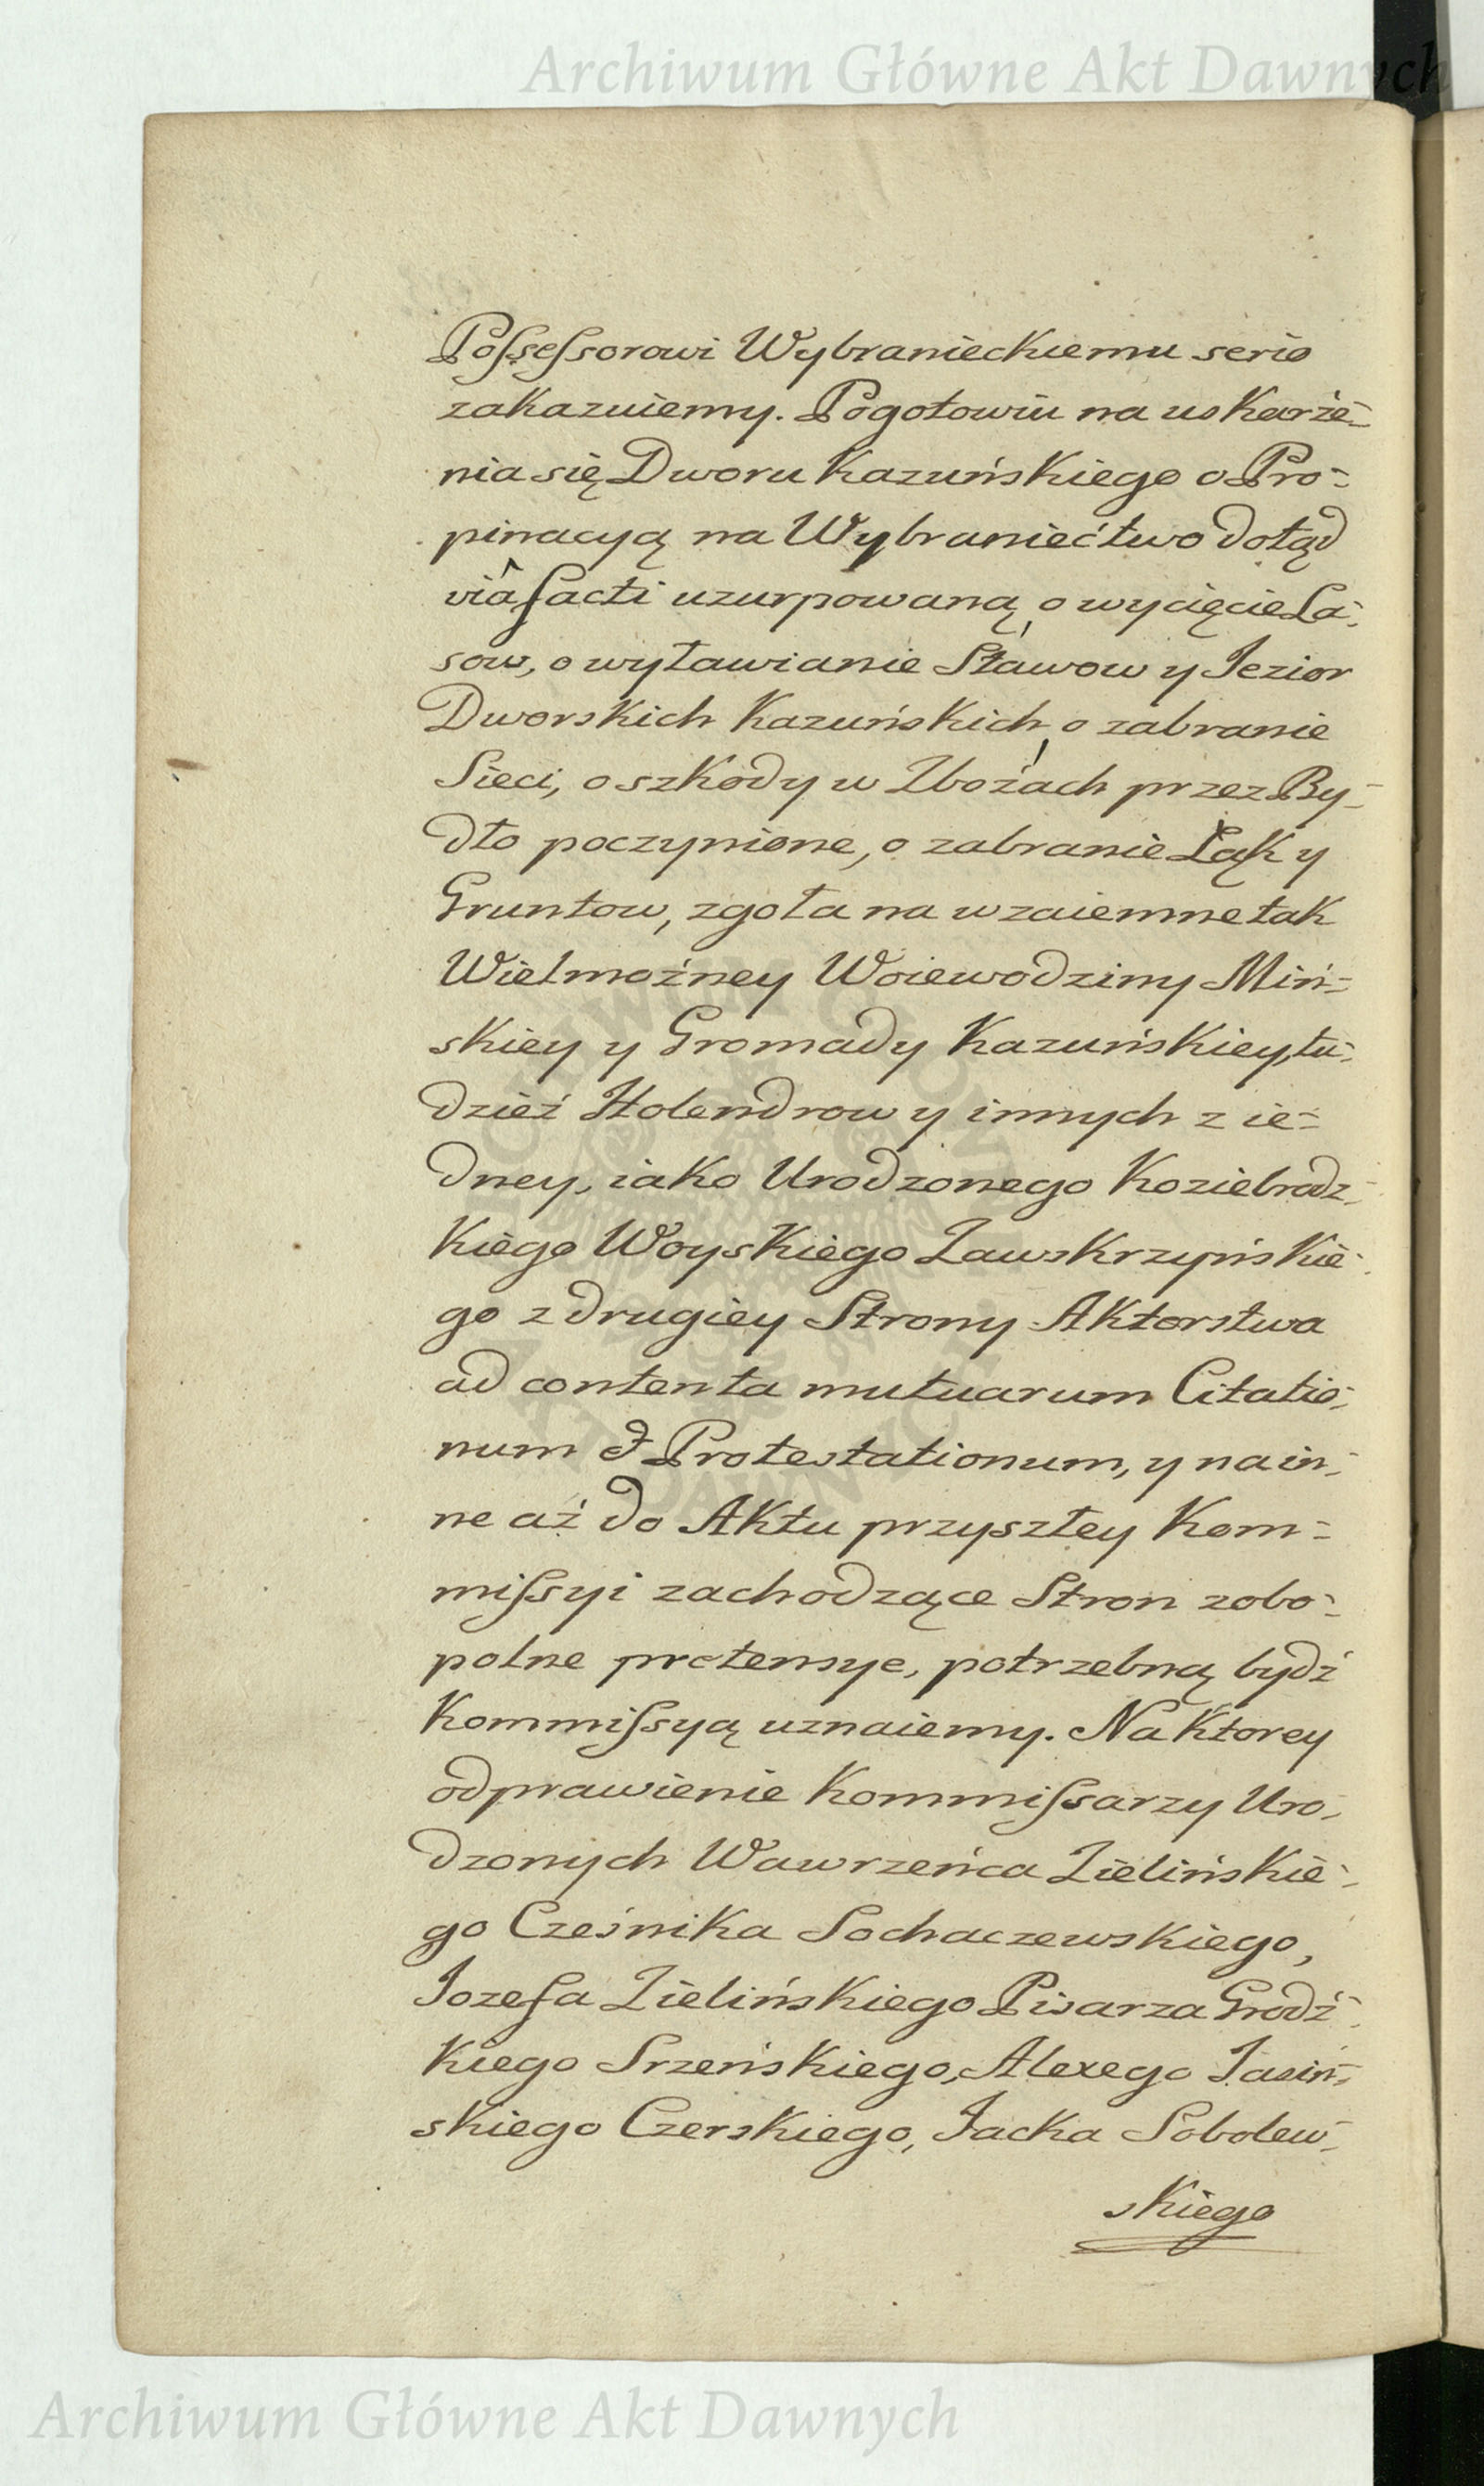 Archiwum Główne Akt Dawnych
Poſseſsorowi Wybranieckiemu serio
zakazuiemy. Pogotowiu na uskarże-
nia się Dworu Kazuńskiego o Pro-
pinacyą na Wybraniećtwo dotąd
viâ facti uzurpowaną, o wycięcie La-
sow, o wyławianie Stawow y Jezior
Dworskich Kazuńskich, o zabranie
Sieci, o szkody w Zbożach przez By-
dło poczynione, o zabranie Łąk y
Gruntow, zgoła na wzaiemne tak
Wielmożney Woiewodziny Miń-
skiey y Gromady Kazuńskiey, tu-
dzież Holendrow y innych z ie-
dney, iako Urodzonego Koziebrodz-
kiego Woyskiego Zawskrzyńskie-
go z drugiey Strony Aktorstwa
ad contenta mutuarum Citatio-
num & Protestationum, y na in-
ne aż do Aktu przyszłey Kom-
miſsyi zachodzące Stron zobo-
polne pretensye, potrzebną bydź
Kommiſsyą uznaiemy. Na ktorey
odprawienie Kommiſsarzy Uro-
dzonych Wawrzeńca Zielińskie-
go Cześnika Sochaczewskiego,
Jozefa Zielińskiego Pisarza Grodz-
kiego Srzeńskiego, Alexego Jasiń-
skiego Czerskiego, Jacka Sobolew-
skiego
Archiwum Główne Akt Dawnych